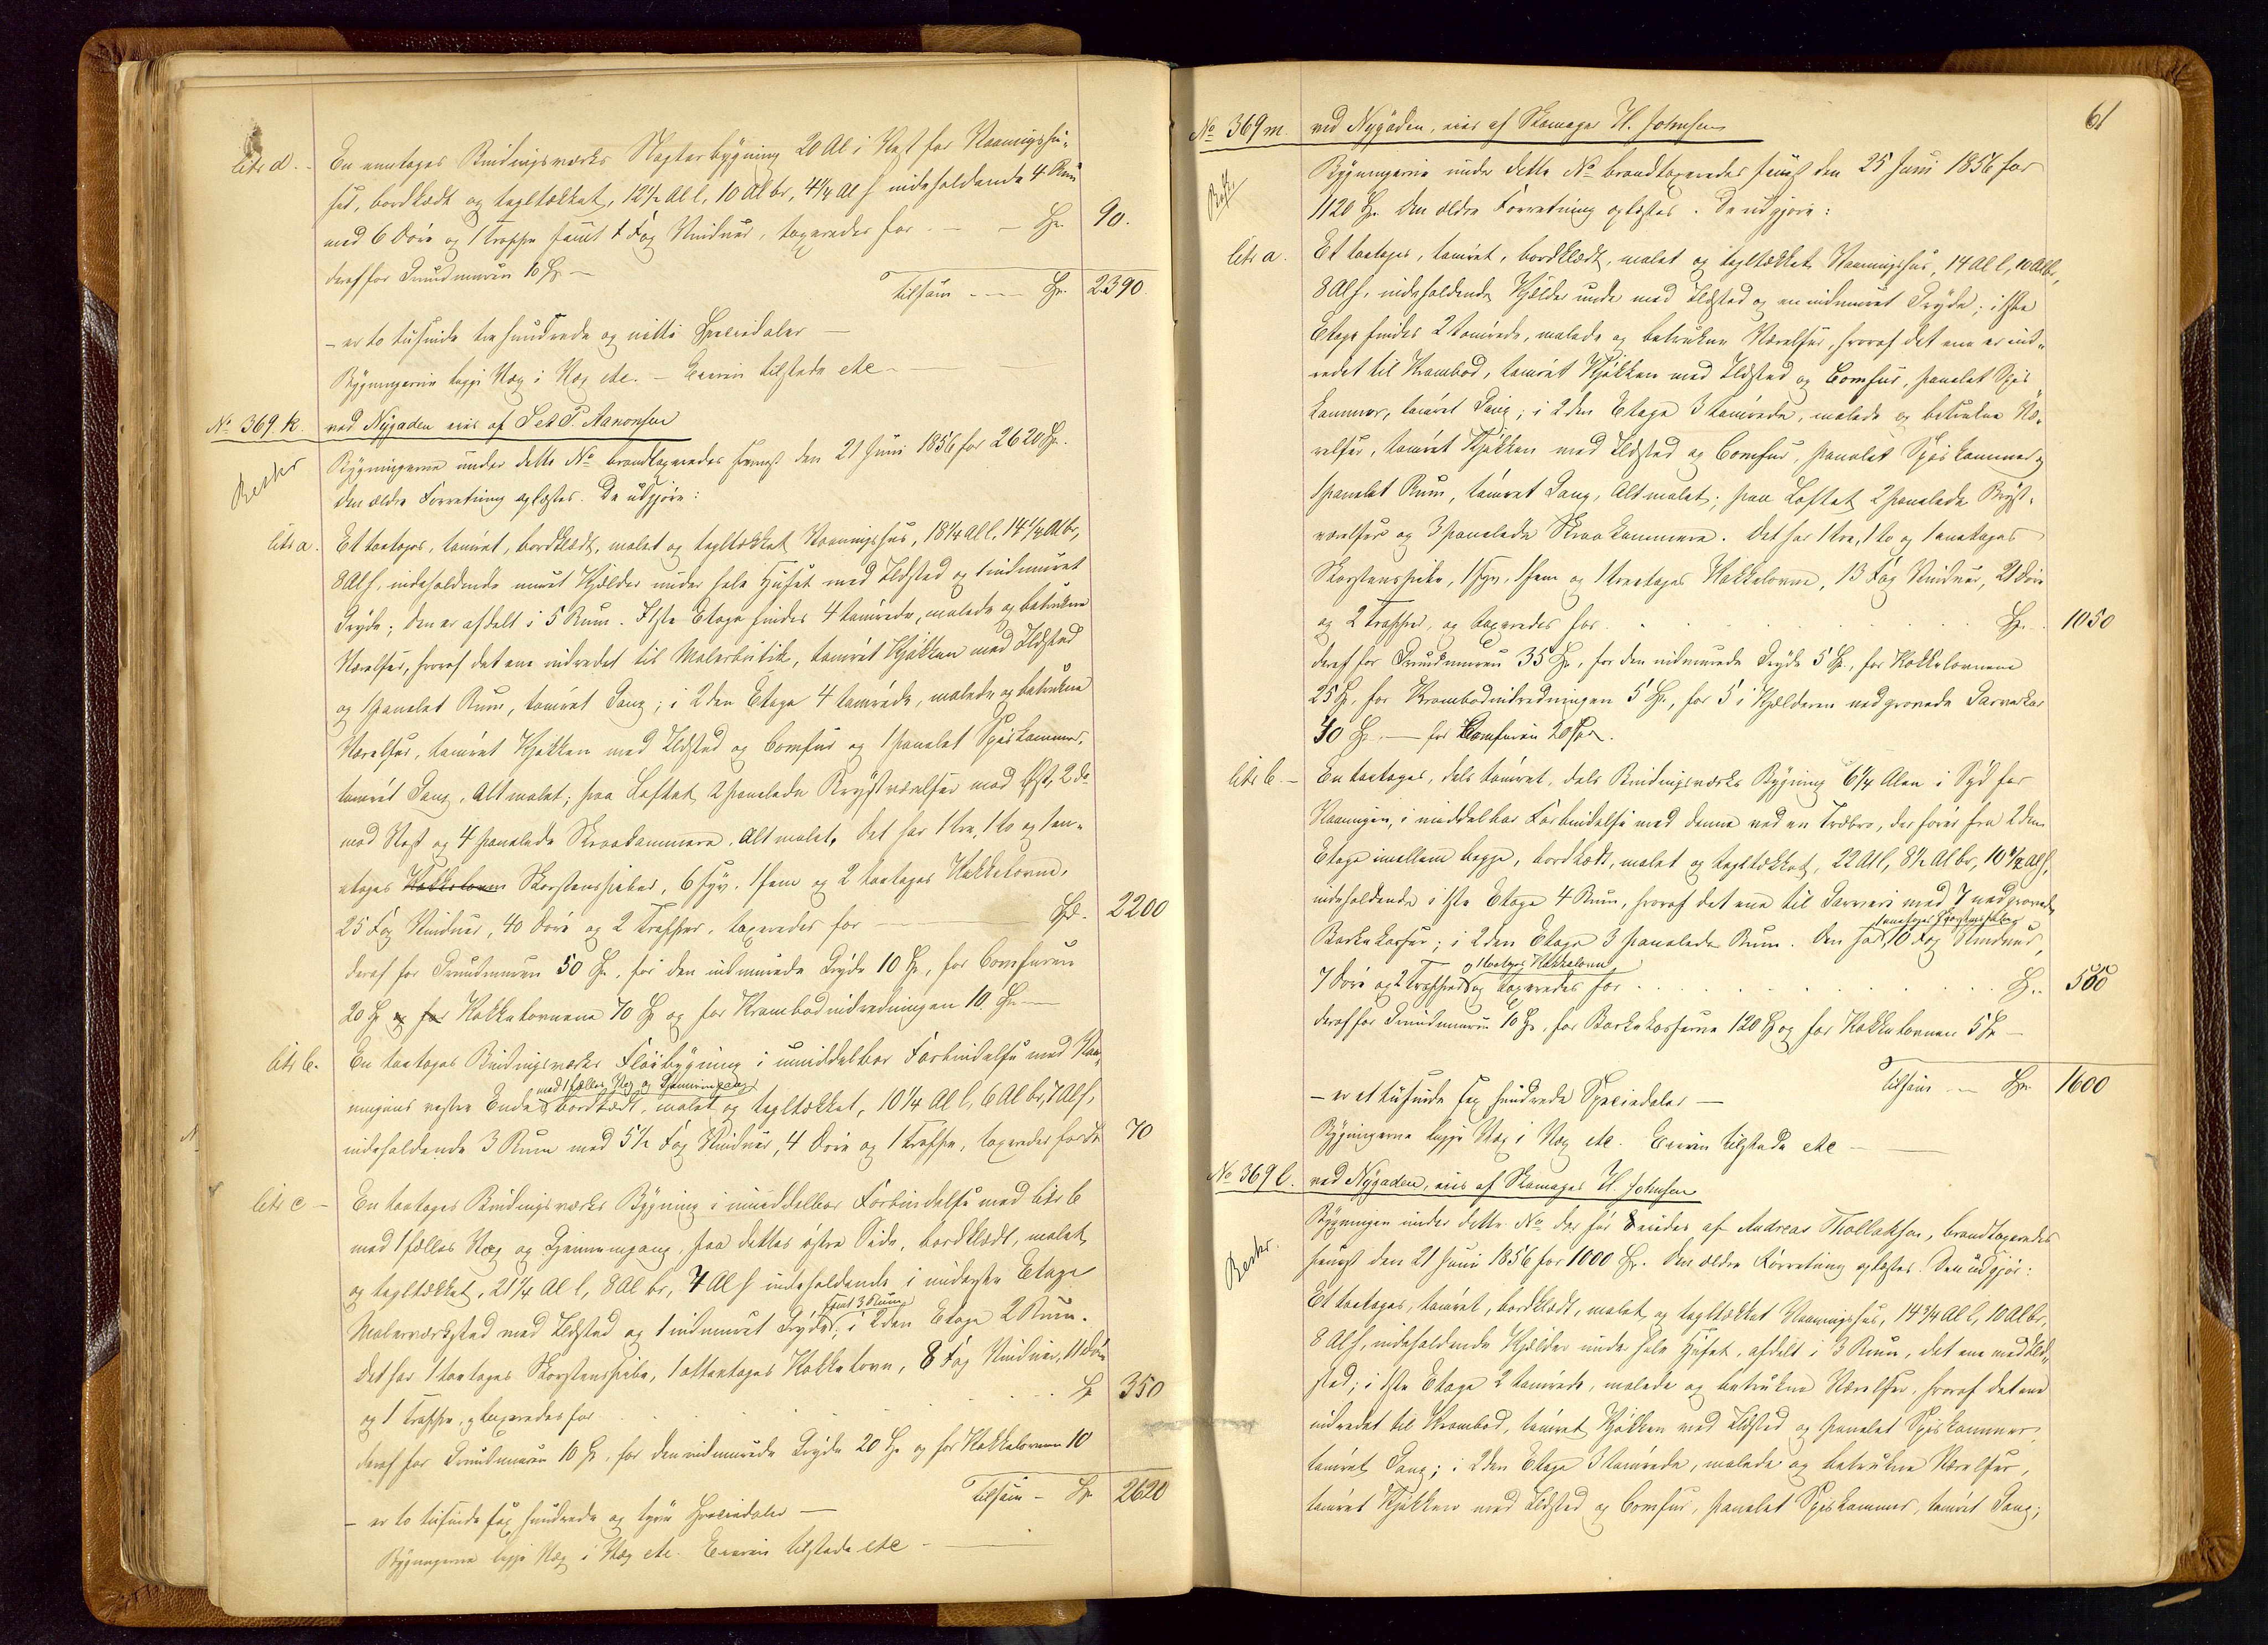 litr d. - En enetages Bindingsværks Slagterbygning 20 Al i Vest for Vaaningshu-
set, bordklædt og tegltækket, 12 1/2 Al l, 10 Al br, 4 1/4 Al h indeholdende 4 Rum
med 6 Døre og 1 Trappe samt 1 Fag Vinduer, taxeredes for - - Sp. 90.
deraf for Grundmuren 10 Sp. -
tilsam - - Sp. 2390
- er to tusinde tre hundrede og nitti Speciedaler -
Bygningerne ligge Væg i Væg etc. - Eieren tilstede etc -
No 369. k. ved Nygaden eies af Set P. Aanonsen
Bygningerne under dette No brandtaxeredes senest den 21 Juni 1856 for 2620 Sp.
den ældre Forretning oplæstes. De udgjøre:
litr a. Et toetages, tømret, bordklædt, malet og tegltækket Vaaningshus, 18 1/4 Al l. 14 1/4 Al br,
8 Al h, indeholdende muret Kjælder under hele Huset med Ildsted og 1 indmuret
Gryde; den er afdelt i 5 Rum. I 1ste Etage findes 4 tømrede, malede og betrukne
Værelser, hvoraf det ene indredet til Malerbutik, tømret Kjøkken med Ildsted
og 1 panelet Rum, tømret Gang; i 2den Etage 4 tømrede, malede og betrukne
Værelser, tømret Kjøkken med Ildsted og Comfur og 1 panelet Spiskammer,
tømret Gang, Alt malet; paa Loftet 2 panelede Brystværelser mod Øst, 2 do
mod Vest og 4 panelede Skraakammere, Alt malet. Det har 1 tre, 1 to og 1 en-
etages Kakkelovn Skorstenspiber, 6 syv, 1 fem og 2 toetages Kakkelovne,
25 Fag Vinduer, 40 Døre og 2 Trapper, taxeredes for - Spd. 2200
deraf for Grundmuren 50 Sp., for den indmurede Gryde 10 Sp., for Comfuren
20 Sp og for Kakkelovnene 70 Sp og for Krambodindredningen 10 Sp. -
litr b. En toetages Bindingsværks Fløibygning i umiddelbar Forbindelse med Vaa-
med 1 fælles Væg og Gjennemgang
ningens vestre Ende, bordklædt, malet og tegltækket, 10 1/4 Al l, 6 Al br, 7 Al h,
indeholdende 3 Rum med 5 1/2 Fag Vinduer, 4 Døre og 1 Trappe, taxeredes for Sp 70
litr c - En toetages Bindingsværks Bygning i umiddelbar Forbindelse med litr b
med 1 fælles Væg og Gjennemgang, paa dettes østre Side, bordklædt, malet
og tegltækket, 21 1/4 Al l, 8 Al br, 7 Al h indeholdende i underste Etage
samt 3 Rum
Malerværksted med Ildsted og 1 indmuret Gryde, i 2den Etage 2 Rum.
Det har 1 toetages Skorstenspibe, 1 Kakkelovn, 8 Fag Vinduer, 11 Døre
og 1 Trappe, og taxeredes for . . . Sp 350
deraf for Grundmuren 10 Sp., for den indmurede Gryde 20 Sp. og for Kakkelovnen 10
Tilsam - Sp. 2620
- er to tusinde sex hundrede og tyve Speciedaler -
Bygningerne ligge Væg i Væg etc. Eieren tilstede etc -
61
No 369 m. ved Nygaden, eies af Skomager H. Johnsen
Bygningerne under dette No brandtaxeredes senest den 25 Juni 1856 for
1120 Sp. Den ældre Forretning oplæstes. De udgjøre:
litr a. Et toetages, tømret, bordklædt, malet og tegltækket Vaaningshus, 14 Al l, 10 Al br,
8 Al h, indeholdende Kjælder under med Ildsted og en indmuret Gryde; i 1ste
Etage findes 2 tømrede, malede og betrukne Værelser, hvoraf det ene er ind-
redet til Krambod, tømret Kjøkken med Ildsted og Comfur, panelet Spis
kammer, tømret Gang; i 2den Etage 3 tømrede, malede og betrukne Væ-
relser, tømret Kjøkken med Ildsted og Comfur, panelet Spiskammer og
1 panelet Rum, tømret Gang, Alt malet; paa Loftet 2 panelede Bryst-
værelser og 3 panelede Skraakammere. Det har 1 tre, 1 to og 1 enetages
Skorstenspibe, 1 syv, 1 fem og 1 treetages Kakkelovne, 13 Fag Vinduer, 21 Døre
og 2 Trapper, og taxeredes for . . . Sp. 1050
deraf for Grundmuren 35 Sp., for den indmurede Gryde 5 Sp., for Kakkelovnene
25 Sp., for Krambodindredningen 5 Sp., for 5 i Kjælderen nedgravede Garverkar
40 Sp. - for Comfuren 20 Spd.
litr b - En toetages, dels tømret, dels Bindingsværks Bygning 6 1/4 Alen i Syd for
Vaaningen, i middelbar Forbindelse med denne ved en Træbro, der fører fra 2den
Etage imellem begge, bordklædt, malet og tegltækket, 22 Al l, 8 1/2 Al br, 10 1/2 Al h,
indeholdende i 1ste Etage 4 Rum, hvoraf det ene til Garveri med 7 nedgravede
1 enetages Skorstenspibe
Barkekarser; i 2den Etage 3 panelede Rum. Den har, 10 Fag Vinduer,
og 1 toetages Kakkelovn
7 Døre og 2 Trapper og taxeredes for . . . Sp. 550
deraf for Grundmuren 10 Sp., for Barkekarserne 120 Sp og for Kakkelovnen 5 Sp -
Tilsam - Sp. 1600
- er et tusinde sex hundrede Speciedaler -
Bygningerne ligge Væg i Væg etc. Eieren tilstede etc -
No 369 l. ved Nygaden, eies af Skomager H. Johnsen
Bygningen under dette No der før eiedes af Andreas Thollaksen, brandtaxeredes
senest den 21 Juni 1856 for 1000 Sp. Den ældre Forretning oplæstes. Den udgjør:
Et toetages, tømret, bordklædt, malet og tegltækket Vaaningshus, 14 3/4 Al l, 10 Al br,
8 Al h, indeholdende Kjælder under hele Huset, afdelt i 3 Rum, det ene med Ild-
sted; i 1ste Etage 2 tømrede, malede og betrukne Værelser, hvoraf det ene
indredet til Krambod, tømret Kjøkken med Ildsted og panelet Spiskammer,
tømret Gang; i 2den Etage 3 tømrede, malede og betrukne Værelser,
tømret Kjøkken med Ildsted og Comfur, panelet Spiskammer, tømret Gang;